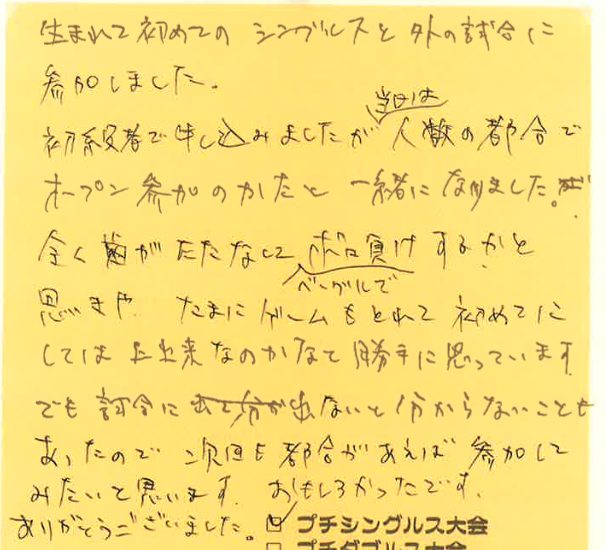 生まれて初めてのシングルスと外の試合に
参加しました。
当日は
初級者で申し込みましたが人数の都合で
オープン参加のかたと一緒になりました。
全く歯がたたなくてボロ負けするかと
ベーグルで
思いきや たまにゲームもとれて初めてに
しては上出来なのかなって勝手に思っています
でも試合に出ないと分からないことも
あったので次回も都合があえば参加して
みたいと思います。おもしろかったです。
ありがとうございました。
プチシングルス大会
プチダブルス大会